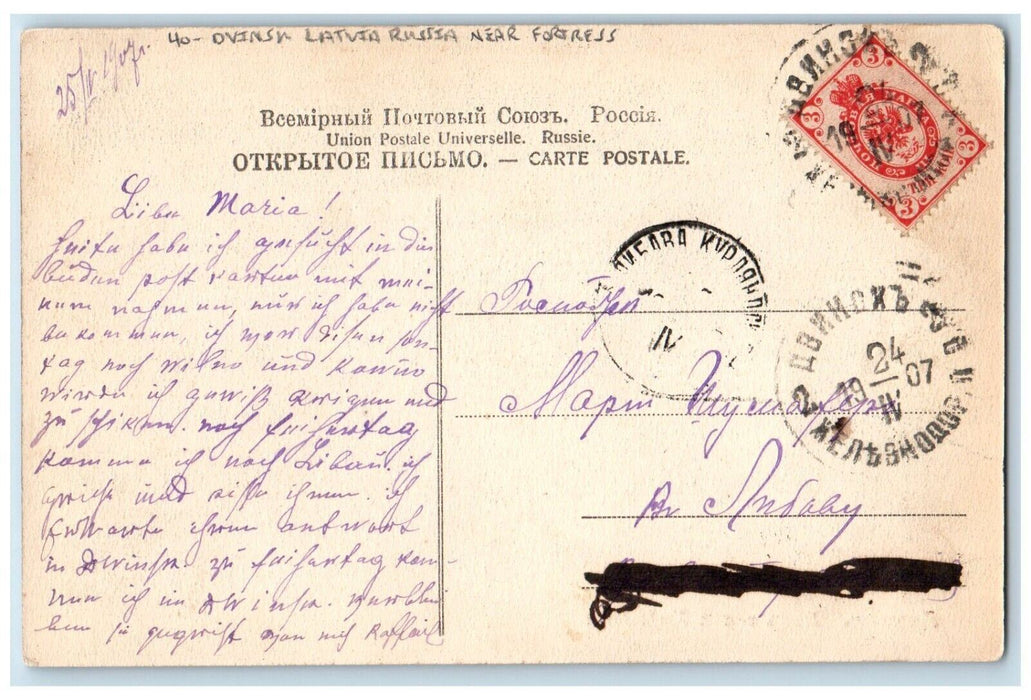 40- DVINSK LATVIA RUSSIA NEAR FORTRESS
25/IV 1907.
Всемірный Почтовый Союзъ. Россія.
Union Postale Universelle. Russie.
ОТКРЫТОЕ ПИСЬМО. — CARTE POSTALE.
3
3
3
3
ДВИНСКЪ
19 IV
ЛИБАВА КУРЛЯНДСК
IV
ДВИНСКЪ
24 IV 1907
2 ЖЕЛѢЗНОДОР.
Liba Maria!
heite habe ich gesucht in die
büden post karten mit mei-
nem nahmen, nur ich habe nicht
bekommen, ich
tag noch Wilno und Kowno
werde ich gewiß krigen und
zu schiken. noch feihertag
komme ich noch Libau. ich
und ihnen. ich
Erwarte ihren antwort
in Dwinsk. zu feihertag kom-
men ich in Dwinsk.
ben sie gegrist von mich
Госпожѣ
Маріи
Въ Либаву